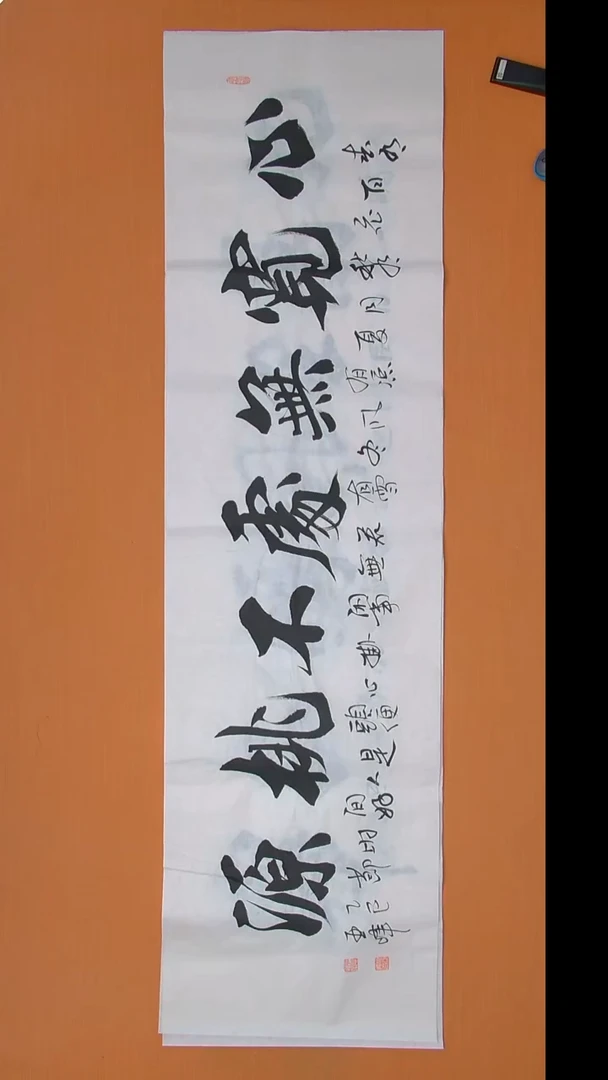 心寬無處不桃源
春有百花秋有月夏有涼风冬有雪若無閑事掛心頭便是人間好时節
乙巳